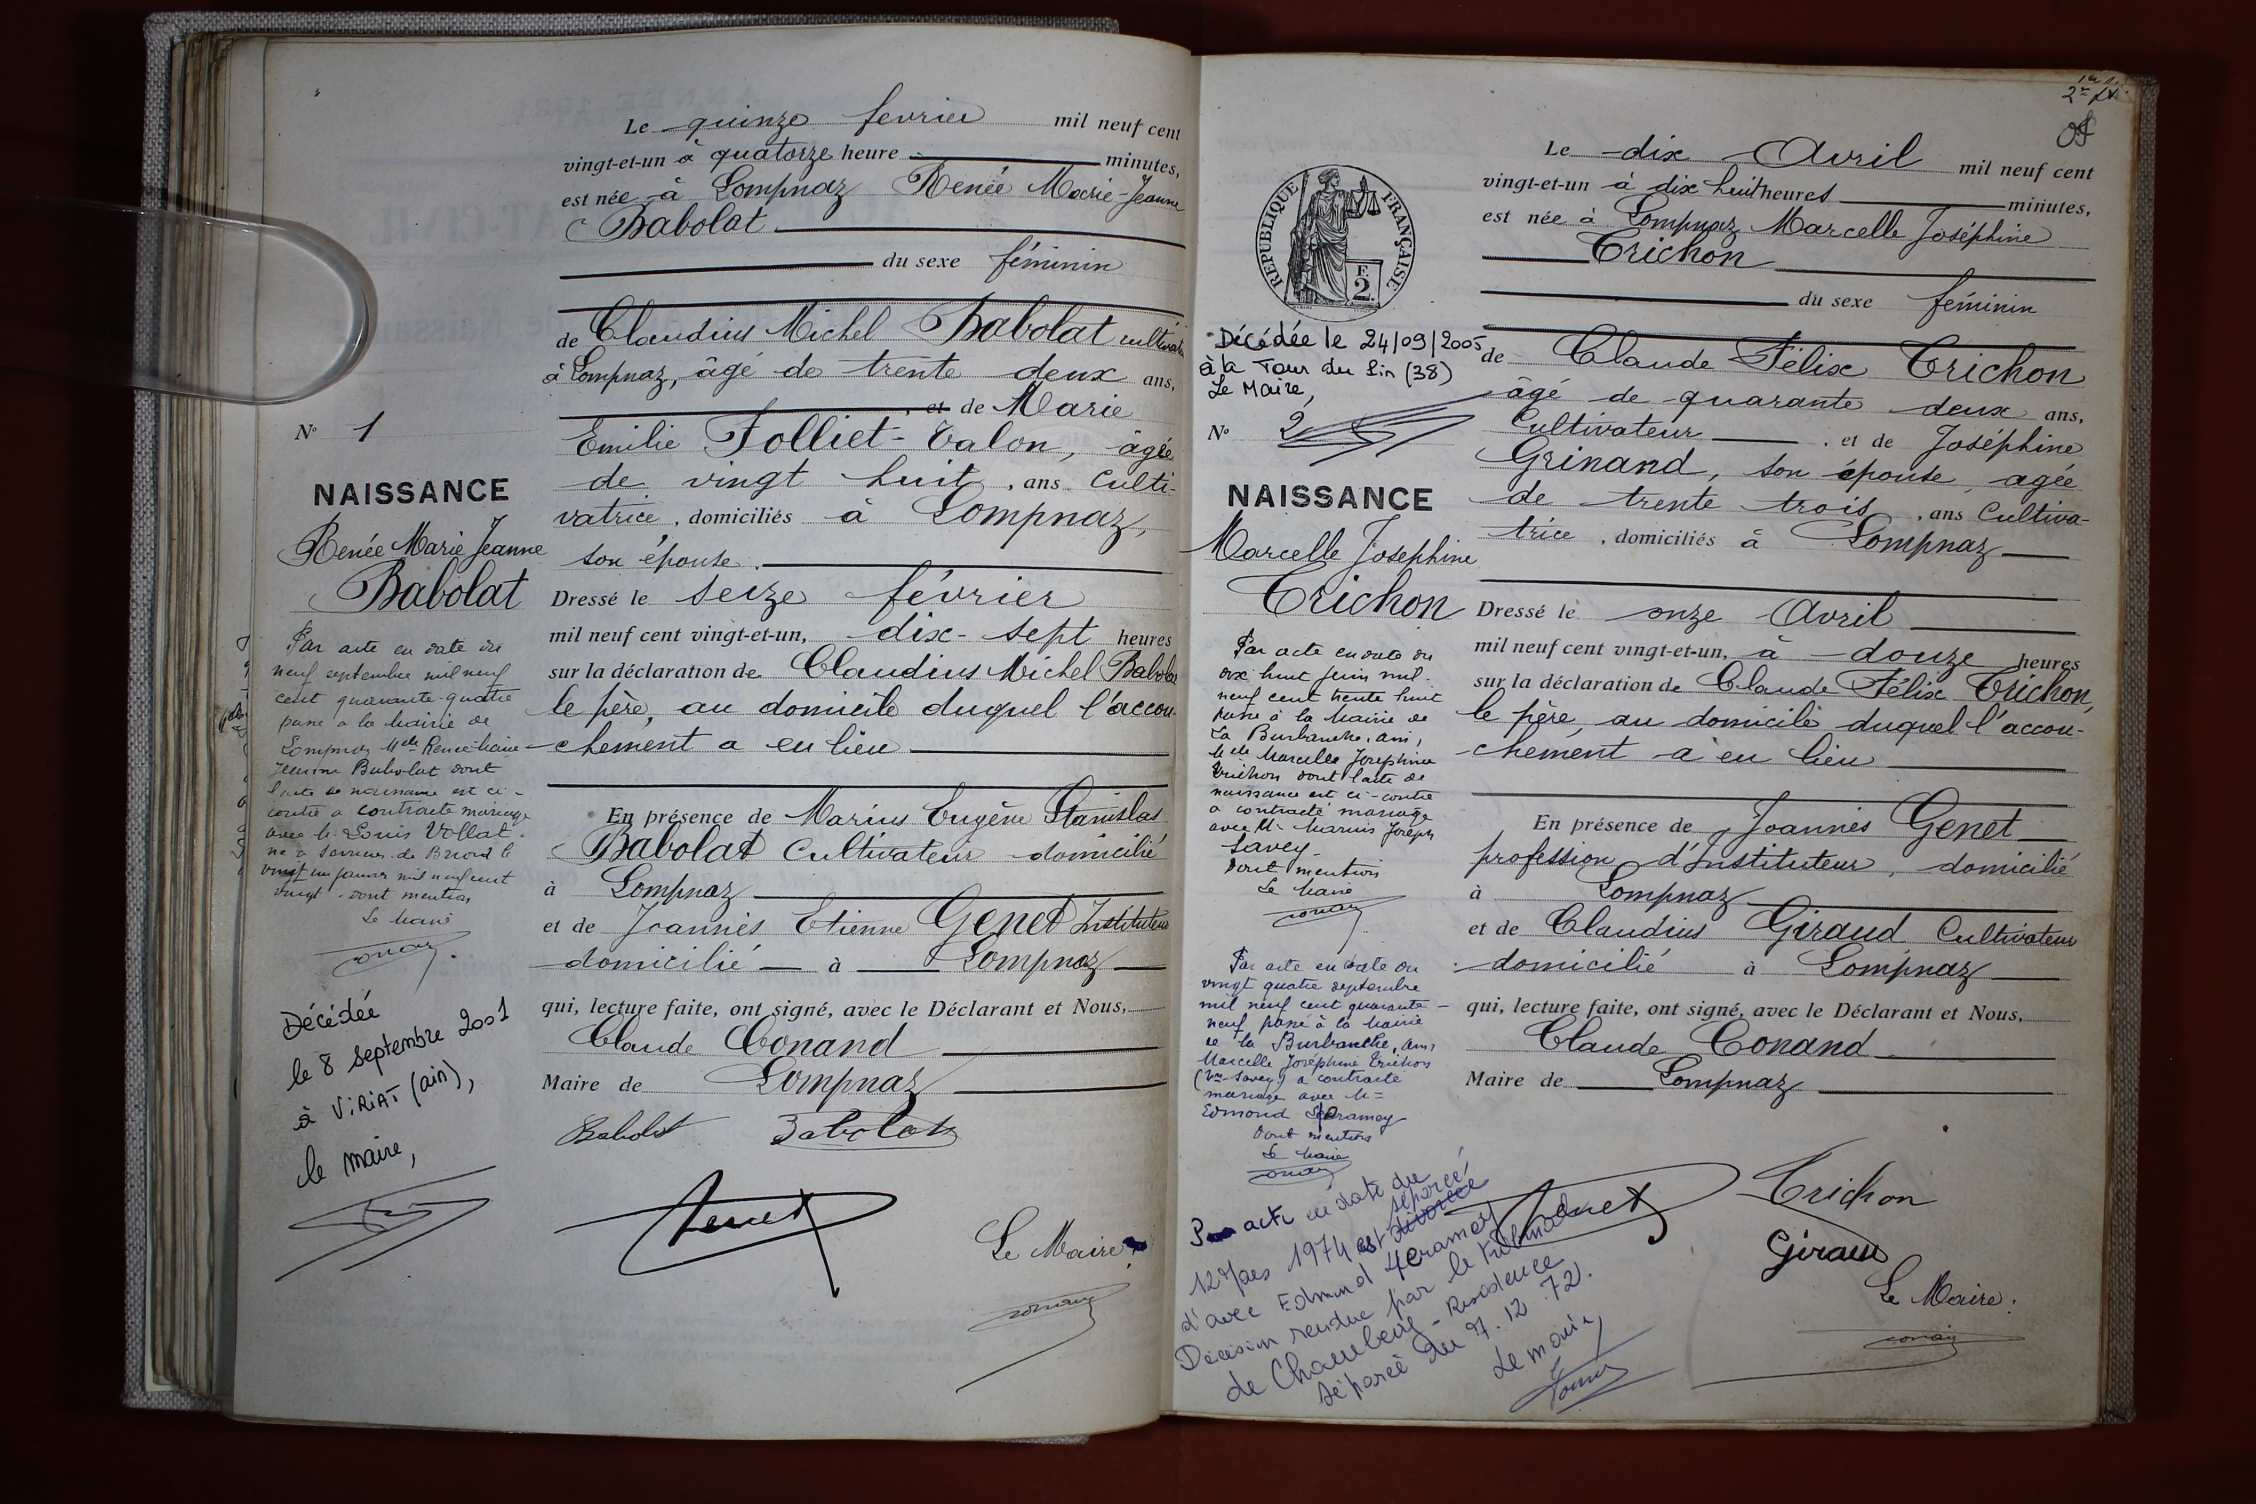 Le quinze fevrier mil neuf cent
vingt-et-un à quatorze heure minutes,
est née à Lompnaz Renée Marie-Jeanne
Babolat
du sexe féminin
de Claudius Michel Babolat
à Lompnaz, âgé de trente deux ans,
et de Marie
Emilie Folliet-Talon, âgée
de vingt huit, ans Culti-
vatrice, domiciliés à Lompnaz,
son épouse.
Dressé le seize février
mil neuf cent vingt-et-un, dix-sept heures
sur la déclaration de Claudius Michel Babolat
le père, au domicile duquel l'accou-
chement a eu lieu
En présence de Marius Eugène Stanislas
Babolat Cultivateur domicilié
à Lompnaz
et de Joannès Etienne Genet Instituteur
domicilié à Lompnaz
qui, lecture faite, ont signé, avec le Déclarant et Nous,
Claude Conand
Maire de Lompnaz
Babolat Babolat
Genet
Le Maire
Conand
N° 1
NAISSANCE
Renée Marie Jeanne
Babolat
Par acte en date du
neuf septembre mil neuf
cent quarante-quatre
passé à la Mairie de
Lompnaz Melle Renée Marie
Jeanne Babolat dont
l'acte de naissance est ci-
contre a contracté mariage
avec M. Louis Vollat
né à Serrières-de-Briord le
vingt un janvier mil neuf cent
vingt. dont mention
Le Maire
Conand
Décédée
le 8 septembre 2001
à VIRIAT (ain),
le maire,
2
05
Le dix Avril mil neuf cent
vingt-et-un à dix huit heures minutes,
est née à Lompnaz Marcelle Joséphine
Trichon
du sexe féminin
de Claude Félix Trichon
âgé de quarante deux ans,
Cultivateur, et de Joséphine
Grinand, son épouse, agée
de trente trois, ans Cultiva-
trice, domiciliés à Lompnaz
Dressé le onze Avril
mil neuf cent vingt-et-un, à douze heures
sur la déclaration de Claude Félix Trichon,
le père, au domicile duquel l'accou-
chement a eu lieu
En présence de Joannès Genet
profession d'Instituteur, domicilié
à Lompnaz
et de Claudius Giraud Cultivateur
domicilié à Lompnaz
qui, lecture faite, ont signé, avec le Déclarant et Nous,
Claude Conand
Maire de Lompnaz
Genet
Trichon
Giraud
Le Maire:
Conand
REPUBLIQUE FRANÇAISE
F.
2.
Décédée le 24/09/2005
à la Tour du Pin (38)
Le Maire,
N° 2
NAISSANCE
Marcelle Josephine
Trichon
Par acte en date du
dix huit juin mil
neuf cent trente huit
passé à la Mairie de
La Burbanche, Ain,
Melle Marcelle Joséphine
Trichon dont l'acte de
naissance est ci-contre
a contracté mariage
avec M. Marius Joseph
Savey
Dont mention
Le Maire
Conand
Par acte en date du
vingt quatre septembre
mil neuf cent quarante
neuf passé à la Mairie
de la Burbanche, Ain,
Marcelle Joséphine Trichon
(Vve Savey) a contracté
mariage avec M=
Edmond
Dont mention
Le Maire
Conand
Par acte en date du
séparée
12 Mars 1974 est divorcée
d'avec Edmond
Décision rendue par le Tribunal
de Chambéry - Résidence
séparée du 7.12.72.
Le maire,